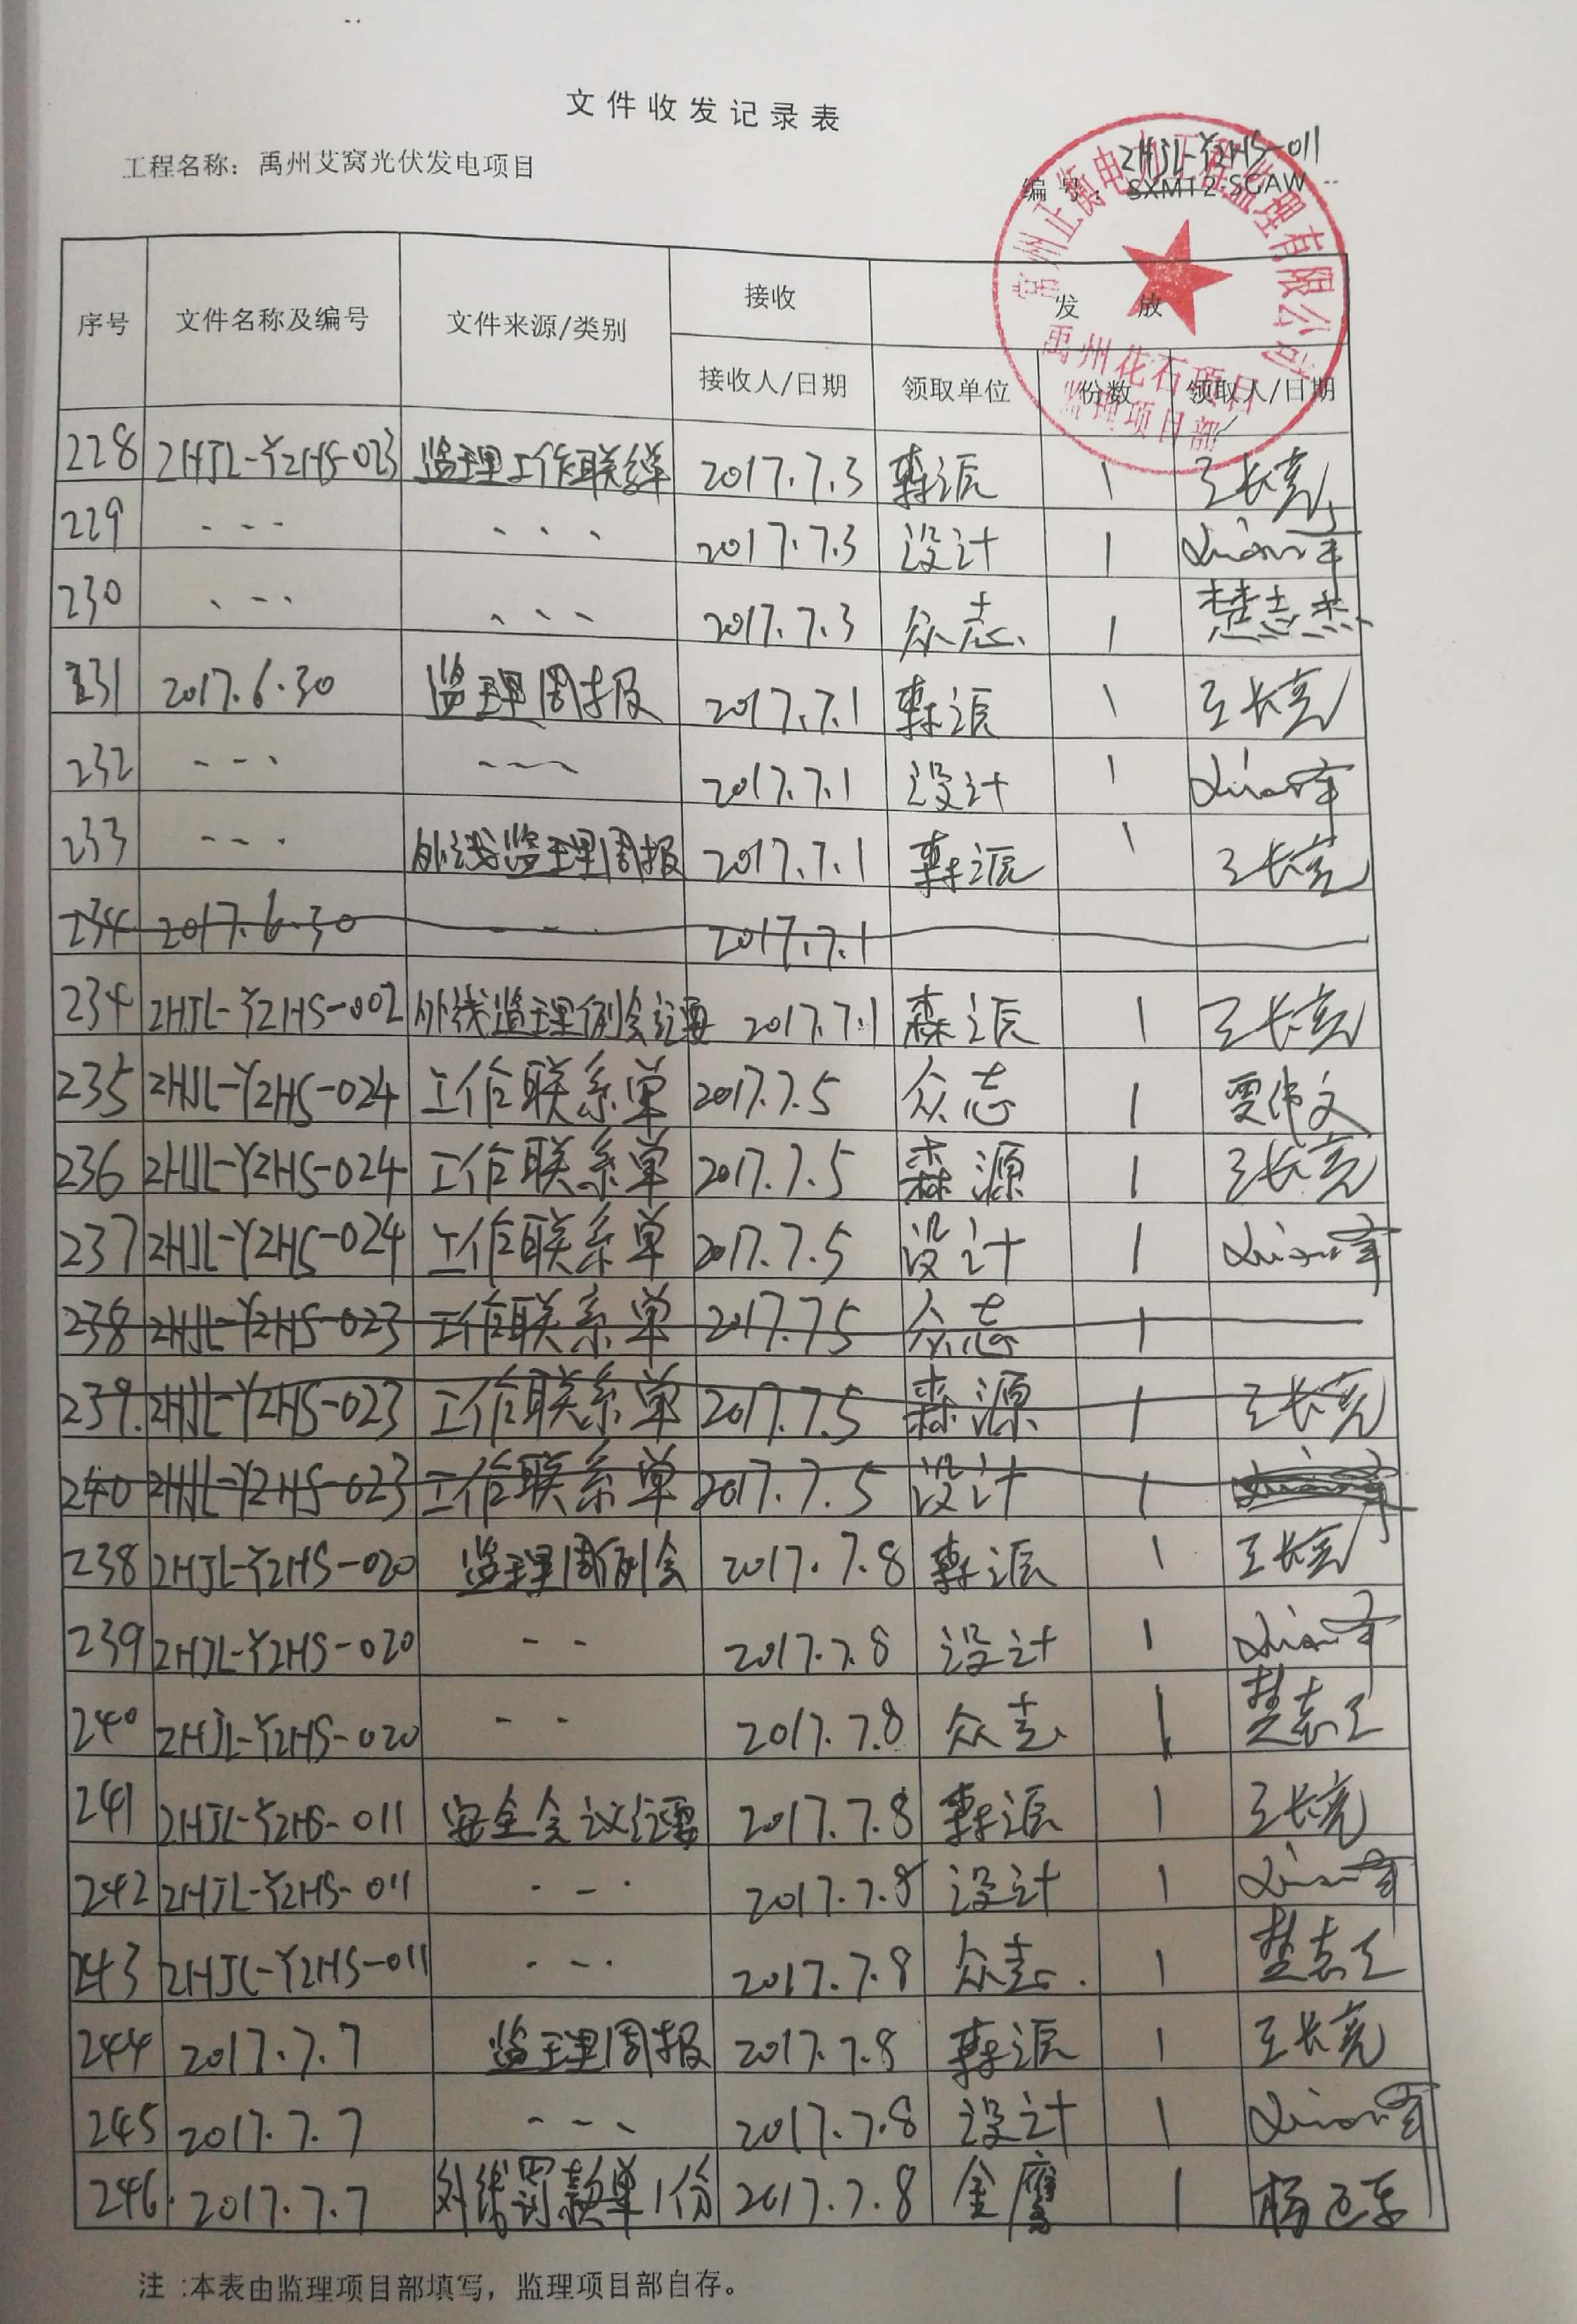 文件收发记录表
ZHJL-YZHS-011
工程名称：禹州艾窝光伏发电项目 编号：SXMT2-SGAW
常州正衡电力工程监理有限公司
禹州花石项目
监理项目部
序号 文件名称及编号 文件来源/类别 接收 发放
接收人/日期 领取单位 份数 领取人/日期
228 ZHJL-YZHS-023 监理工作联系单 2017.7.3 森源 1 王长亮
229 - - - - - - 2017.7.3 设计 1
230 - - - - - - 2017.7.3 众志 1
231 2017.6.30 监理周报 2017.7.1 森源 1 王长亮
232 - - - - - - 2017.7.1 设计 1
233 - - - 外线监理周报 2017.7.1 森源 1 王长亮
234 2017.6.30 - - - 2017.7.1
234 ZHJL-YZHS-002 外线监理例会纪要 2017.7.1 森源 1 王长亮
235 ZHJL-YZHS-024 工作联系单 2017.7.5 众志 1
236 ZHJL-YZHS-024 工作联系单 2017.7.5 森源 1 王长亮
237 ZHJL-YZHS-024 工作联系单 2017.7.5 设计 1
238 ZHJL-YZHS-023 工作联系单 2017.7.5 众志 1
239. ZHJL-YZHS-023 工作联系单 2017.7.5 森源 1 王长亮
240 ZHJL-YZHS-023 工作联系单 2017.7.5 设计 1
238 ZHJL-YZHS-020 监理周例会 2017.7.8 森源 1 王长亮
239 ZHJL-YZHS-020 - - 2017.7.8 设计 1
240 ZHJL-YZHS-020 - - 2017.7.8 众志 1
241 ZHJL-YZHS-011 安全会议纪要 2017.7.8 森源 1 王长亮
242 ZHJL-YZHS-011 - - - 2017.7.8 设计 1
243 ZHJL-YZHS-011 - - - 2017.7.8 众志. 1
244 2017.7.7 监理周报 2017.7.8 森源 1 王长亮
245 2017.7.7 - - - 2017.7.8 设计 1
246 2017.7.7 外线罚款单1份 2017.7.8 金鹰 1
注：本表由监理项目部填写，监理项目部自存。